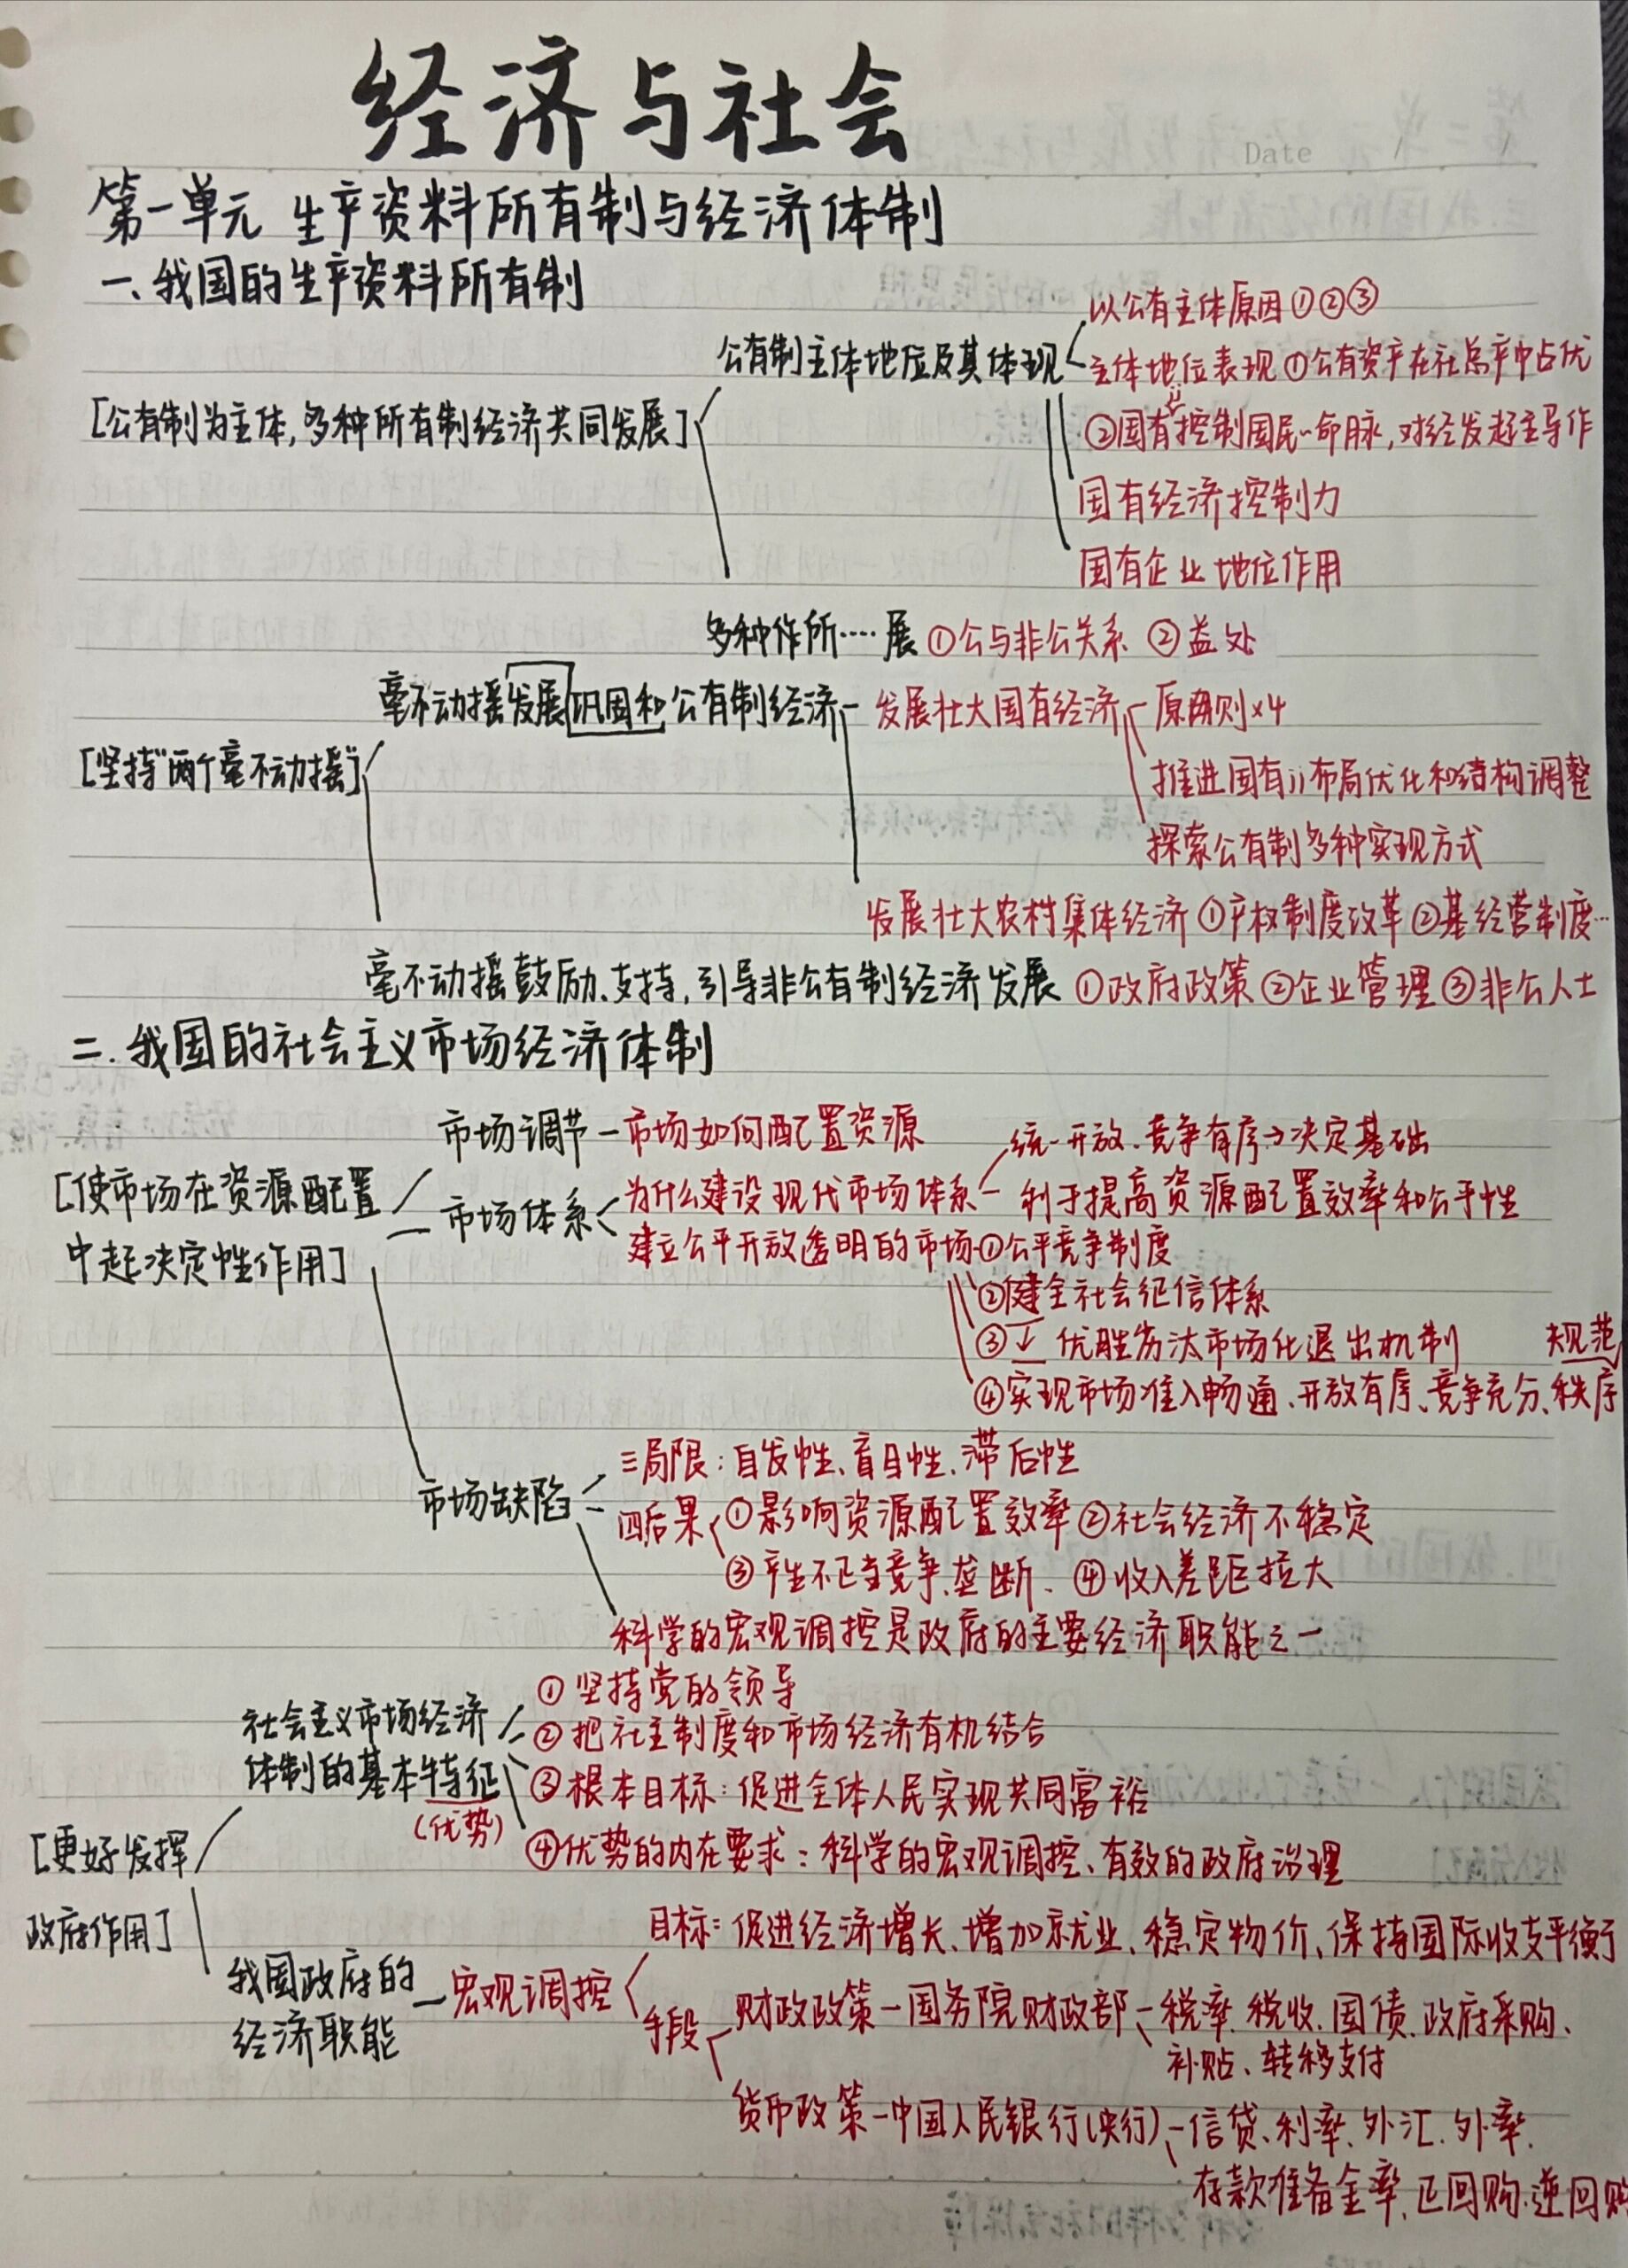 经济与社会
Date
第一单元 生产资料所有制与经济体制
一、我国的生产资料所有制
以公有主体原因①②③
公有制主体地位及其体现
主体地位表现①公有资产在社总产中占优
[公有制为主体,多种所有制经济共同发展]
②国有控制国民~命脉,对经发起主导作
国有经济控制力
国有企业地位作用
多种作所····展 ①公与非公关系 ②益处
毫不动摇发展巩固和公有制经济
发展壮大国有经济
原则×4
[坚持"两个毫不动摇"]
推进国有〃布局优化和结构调整
探索公有制多种实现方式
发展壮大农村集体经济①产权制度改革②基经营制度…
毫不动摇鼓励、支持,引导非公有制经济发展 ①政府政策②企业管理③非公人士
二.我国的社会主义市场经济体制
市场调节-市场如何配置资源
统一开放、竞争有序→决定基础
[使市场在资源配置
市场体系
为什么建设现代市场体系
利于提高资源配置效率和公平性
中起决定性作用]
建立公平开放透明的市场
①公平竞争制度
②健全社会征信体系
③↓优胜劣汰市场化退出机制
规范
④实现市场准入畅通、开放有序、竞争充分、秩序
三局限:自发性、盲目性、滞后性
市场缺陷
四后果
①影响资源配置效率②社会经济不稳定
③产生不正当竞争、垄断. ④收入差距拉大
科学的宏观调控是政府的主要经济职能之一
①坚持党的领导
社会主义市场经济
②把社主制度和市场经济有机结合
体制的基本特征
③根本目标:促进全体人民实现共同富裕
(优势)
④优势的内在要求:科学的宏观调控、有效的政府治理
[更好发挥
政府作用]
目标:促进经济增长、增加就业、稳定物价、保持国际收支平衡
我国政府的
经济职能
宏观调控
手段
财政政策-国务院财政部-税率.税收.国债.政府采购、
补贴、转移支付
货币政策-中国人民银行(央行)-信贷、利率、外汇.外率.
存款准备金率、正回购.逆回购